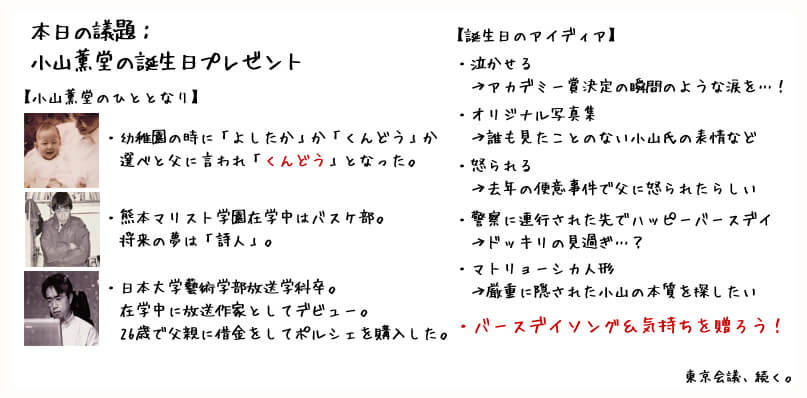 本日の議題；
小山薫堂の誕生日プレゼント
【小山薫堂のひととなり】
・幼稚園の時に「よしたか」か「くんどう」か
選べと父に言われ「くんどう」となった。
・熊本マリスト学園在学中はバスケ部。
将来の夢は「詩人」。
・日本大学藝術学部放送学科卒。
在学中に放送作家としてデビュー。
26歳で父親に借金をしてポルシェを購入した。
【誕生日のアイディア】
・泣かせる
→アカデミー賞決定の瞬間のような涙を…！
・オリジナル写真集
→誰も見たことのない小山氏の表情など
・怒られる
→去年の便意事件で父に怒られたらしい
・警察に連行された先でハッピーバースデイ
→ドッキリの見過ぎ…？
・マトリョーシカ人形
→厳重に隠された小山の本質を探したい
・バースデイソング＆気持ちを贈ろう！
東京会議、続く。